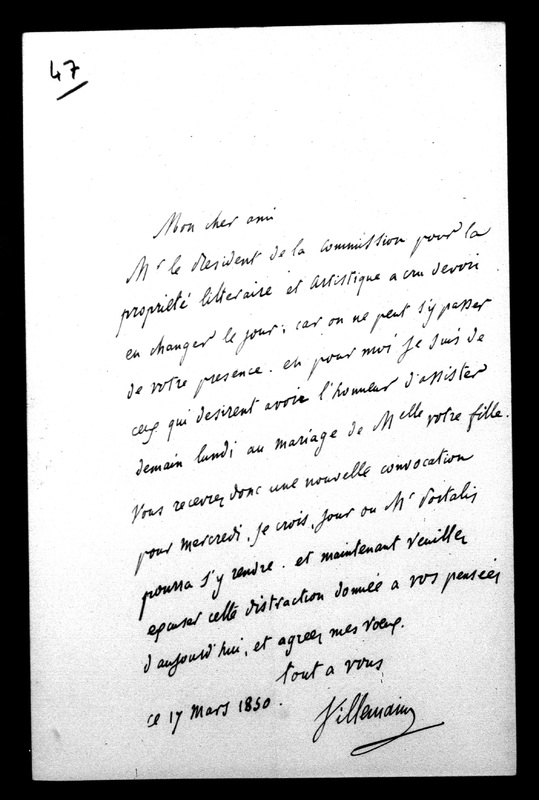 47
Mon cher ami
Mr le President de la commission pour la
propriété litteraire et artistique a cru devoir
en changer le jour; car on ne peut s'y passer
de votre presence. eh pour moi je suis de
ceux qui desirent avoir l'honneur d'assister
demain lundi au mariage de Melle votre fille.
Vous recevrez donc une nouvelle convocation
pour mercredi, je crois, jour ou Mr Portalis
pourra s'y rendre. et maintenant veuillez
excuser cette distraction donnée a vos pensées
d'aujourd'hui, et agreez mes voeux.
tout a vous
ce 17 mars 1850.
Villemain